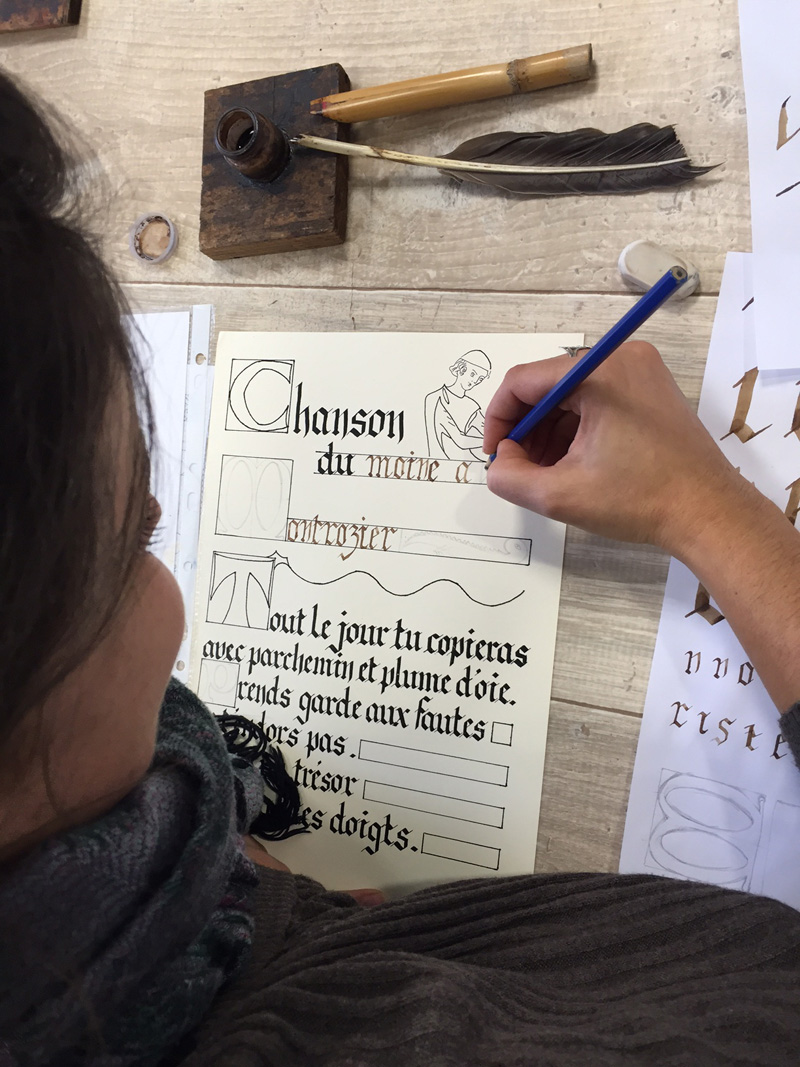 Chanson
du moine a
Montrozier
Tout le jour tu copieras
avec parchemin et plume d'oie.
Prends garde aux fautes
dors pas.
trésor
es doigts.
nno
riste